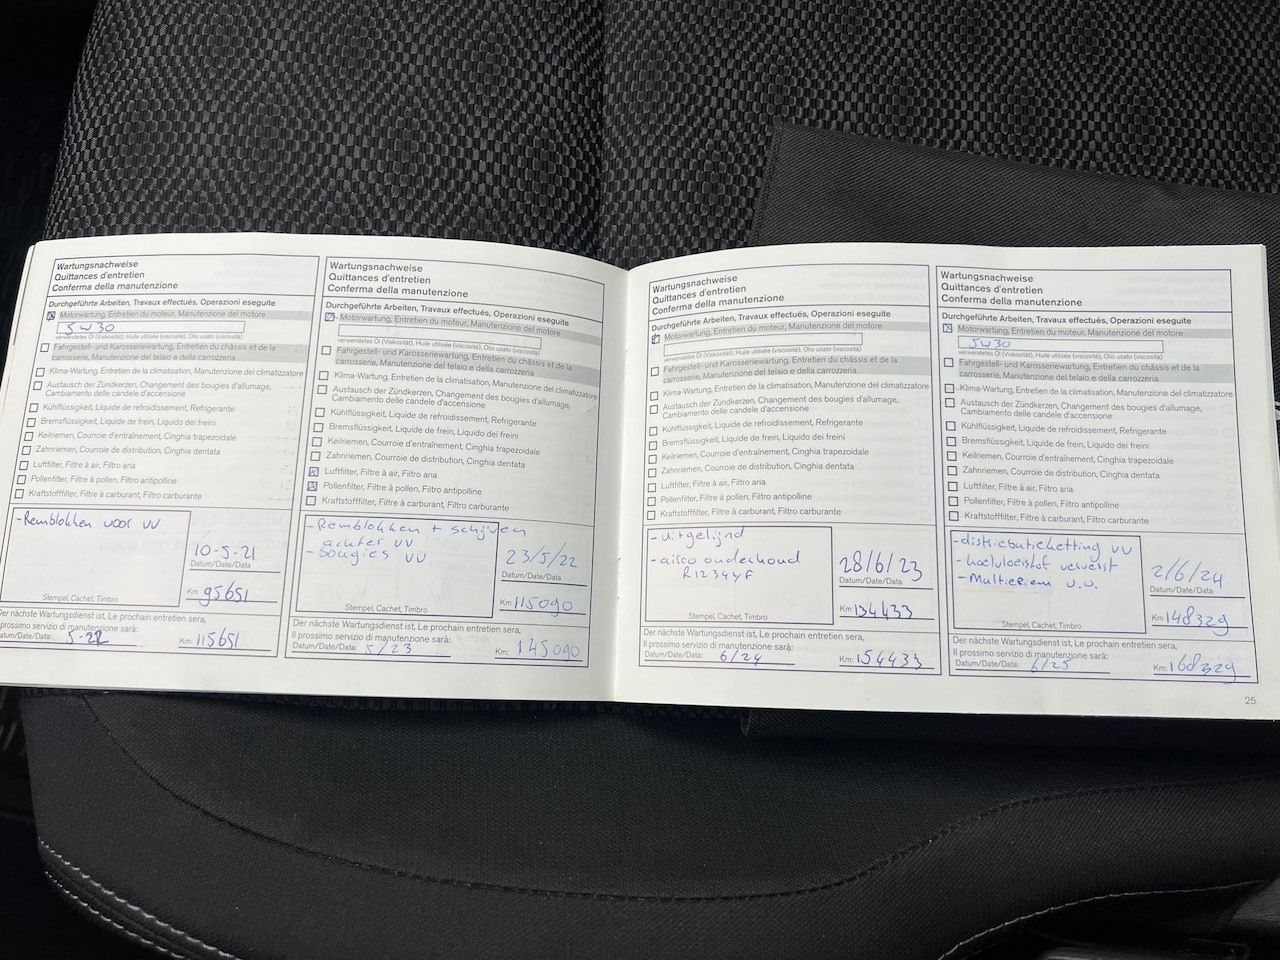 Wartungsnachweise
Quittances d'entretien
Conferma della manutenzione
Durchgeführte Arbeiten, Travaux effectués, Operazioni eseguite
Motorwartung, Entretien du moteur, Manutenzione del motore
5W30
verwendetes Öl (Viskosität), Huile utilisée (viscosité), Olio usato (viscosità)
Fahrgestell- und Karosseriewartung, Entretien du châssis et de la
carrosserie, Manutenzione del telaio e della carrozzeria
Klima-Wartung, Entretien de la climatisation, Manutenzione del climatizzatore
Austausch der Zündkerzen, Changement des bougies d'allumage,
Cambiamento delle candele d'accensione
Kühlflüssigkeit, Liquide de refroidissement, Refrigerante
Bremsflüssigkeit, Liquide de frein, Liquido dei freini
Keilriemen, Courroie d'entraînement, Cinghia trapezoidale
Zahnriemen, Courroie de distribution, Cinghia dentata
Luftfilter, Filtre à air, Filtro aria
Pollenfilter, Filtre à pollen, Filtro antipolline
Kraftstofffilter, Filtre à carburant, Filtro carburante
- Remblokken voor vv
10-5-21
Datum/Date/Data
Km 95651
Stempel, Cachet, Timbro
Der nächste Wartungsdienst ist, Le prochain entretien sera,
prossimo servizio di manutenzione sarà:
atum/Date/Data: 5-22 Km: 115651
Wartungsnachweise
Quittances d'entretien
Conferma della manutenzione
Durchgeführte Arbeiten, Travaux effectués, Operazioni eseguite
Motorwartung, Entretien du moteur, Manutenzione del motore
verwendetes Öl (Viskosität), Huile utilisée (viscosité), Olio usato (viscosità)
Fahrgestell- und Karosseriewartung, Entretien du châssis et de la
carrosserie, Manutenzione del telaio e della carrozzeria
Klima-Wartung, Entretien de la climatisation, Manutenzione del climatizzatore
Austausch der Zündkerzen, Changement des bougies d'allumage,
Cambiamento delle candele d'accensione
Kühlflüssigkeit, Liquide de refroidissement, Refrigerante
Bremsflüssigkeit, Liquide de frein, Liquido dei freini
Keilriemen, Courroie d'entraînement, Cinghia trapezoidale
Zahnriemen, Courroie de distribution, Cinghia dentata
Luftfilter, Filtre à air, Filtro aria
Pollenfilter, Filtre à pollen, Filtro antipolline
Kraftstofffilter, Filtre à carburant, Filtro carburante
- Remblokken + schijven
achter vv
- bougies vv
23/5/22
Datum/Date/Data
Km 115090
Stempel, Cachet, Timbro
Der nächste Wartungsdienst ist, Le prochain entretien sera,
Il prossimo servizio di manutenzione sarà:
Datum/Date/Data: 5/23 Km: 145090
Wartungsnachweise
Quittances d'entretien
Conferma della manutenzione
Durchgeführte Arbeiten, Travaux effectués, Operazioni eseguite
Motorwartung, Entretien du moteur, Manutenzione del motore
verwendetes Öl (Viskosität), Huile utilisée (viscosité), Olio usato (viscosità)
Fahrgestell- und Karosseriewartung, Entretien du châssis et de la
carrosserie, Manutenzione del telaio e della carrozzeria
Klima-Wartung, Entretien de la climatisation, Manutenzione del climatizzatore
Austausch der Zündkerzen, Changement des bougies d'allumage,
Cambiamento delle candele d'accensione
Kühlflüssigkeit, Liquide de refroidissement, Refrigerante
Bremsflüssigkeit, Liquide de frein, Liquido dei freini
Keilriemen, Courroie d'entraînement, Cinghia trapezoidale
Zahnriemen, Courroie de distribution, Cinghia dentata
Luftfilter, Filtre à air, Filtro aria
Pollenfilter, Filtre à pollen, Filtro antipolline
Kraftstofffilter, Filtre à carburant, Filtro carburante
- Uitgelijnd
- airco onderhoud
R1234YF
28/6/23
Datum/Date/Data
Km 134433
Stempel, Cachet, Timbro
Der nächste Wartungsdienst ist, Le prochain entretien sera,
Il prossimo servizio di manutenzione sarà:
Datum/Date/Data: 6/24 Km: 154433
Wartungsnachweise
Quittances d'entretien
Conferma della manutenzione
Durchgeführte Arbeiten, Travaux effectués, Operazioni eseguite
Motorwartung, Entretien du moteur, Manutenzione del motore
5W30
verwendetes Öl (Viskosität), Huile utilisée (viscosité), Olio usato (viscosità)
Fahrgestell- und Karosseriewartung, Entretien du châssis et de la
carrosserie, Manutenzione del telaio e della carrozzeria
Klima-Wartung, Entretien de la climatisation, Manutenzione del climatizzatore
Austausch der Zündkerzen, Changement des bougies d'allumage,
Cambiamento delle candele d'accensione
Kühlflüssigkeit, Liquide de refroidissement, Refrigerante
Bremsflüssigkeit, Liquide de frein, Liquido dei freini
Keilriemen, Courroie d'entraînement, Cinghia trapezoidale
Zahnriemen, Courroie de distribution, Cinghia dentata
Luftfilter, Filtre à air, Filtro aria
Pollenfilter, Filtre à pollen, Filtro antipolline
Kraftstofffilter, Filtre à carburant, Filtro carburante
- distributieketting vv
- koelvloeistof ververst
- Multiriem v.v.
2/6/24
Datum/Date/Data
Km 148329
Stempel, Cachet, Timbro
Der nächste Wartungsdienst ist, Le prochain entretien sera,
Il prossimo servizio di manutenzione sarà:
Datum/Date/Data: 6/25 Km: 168329
25